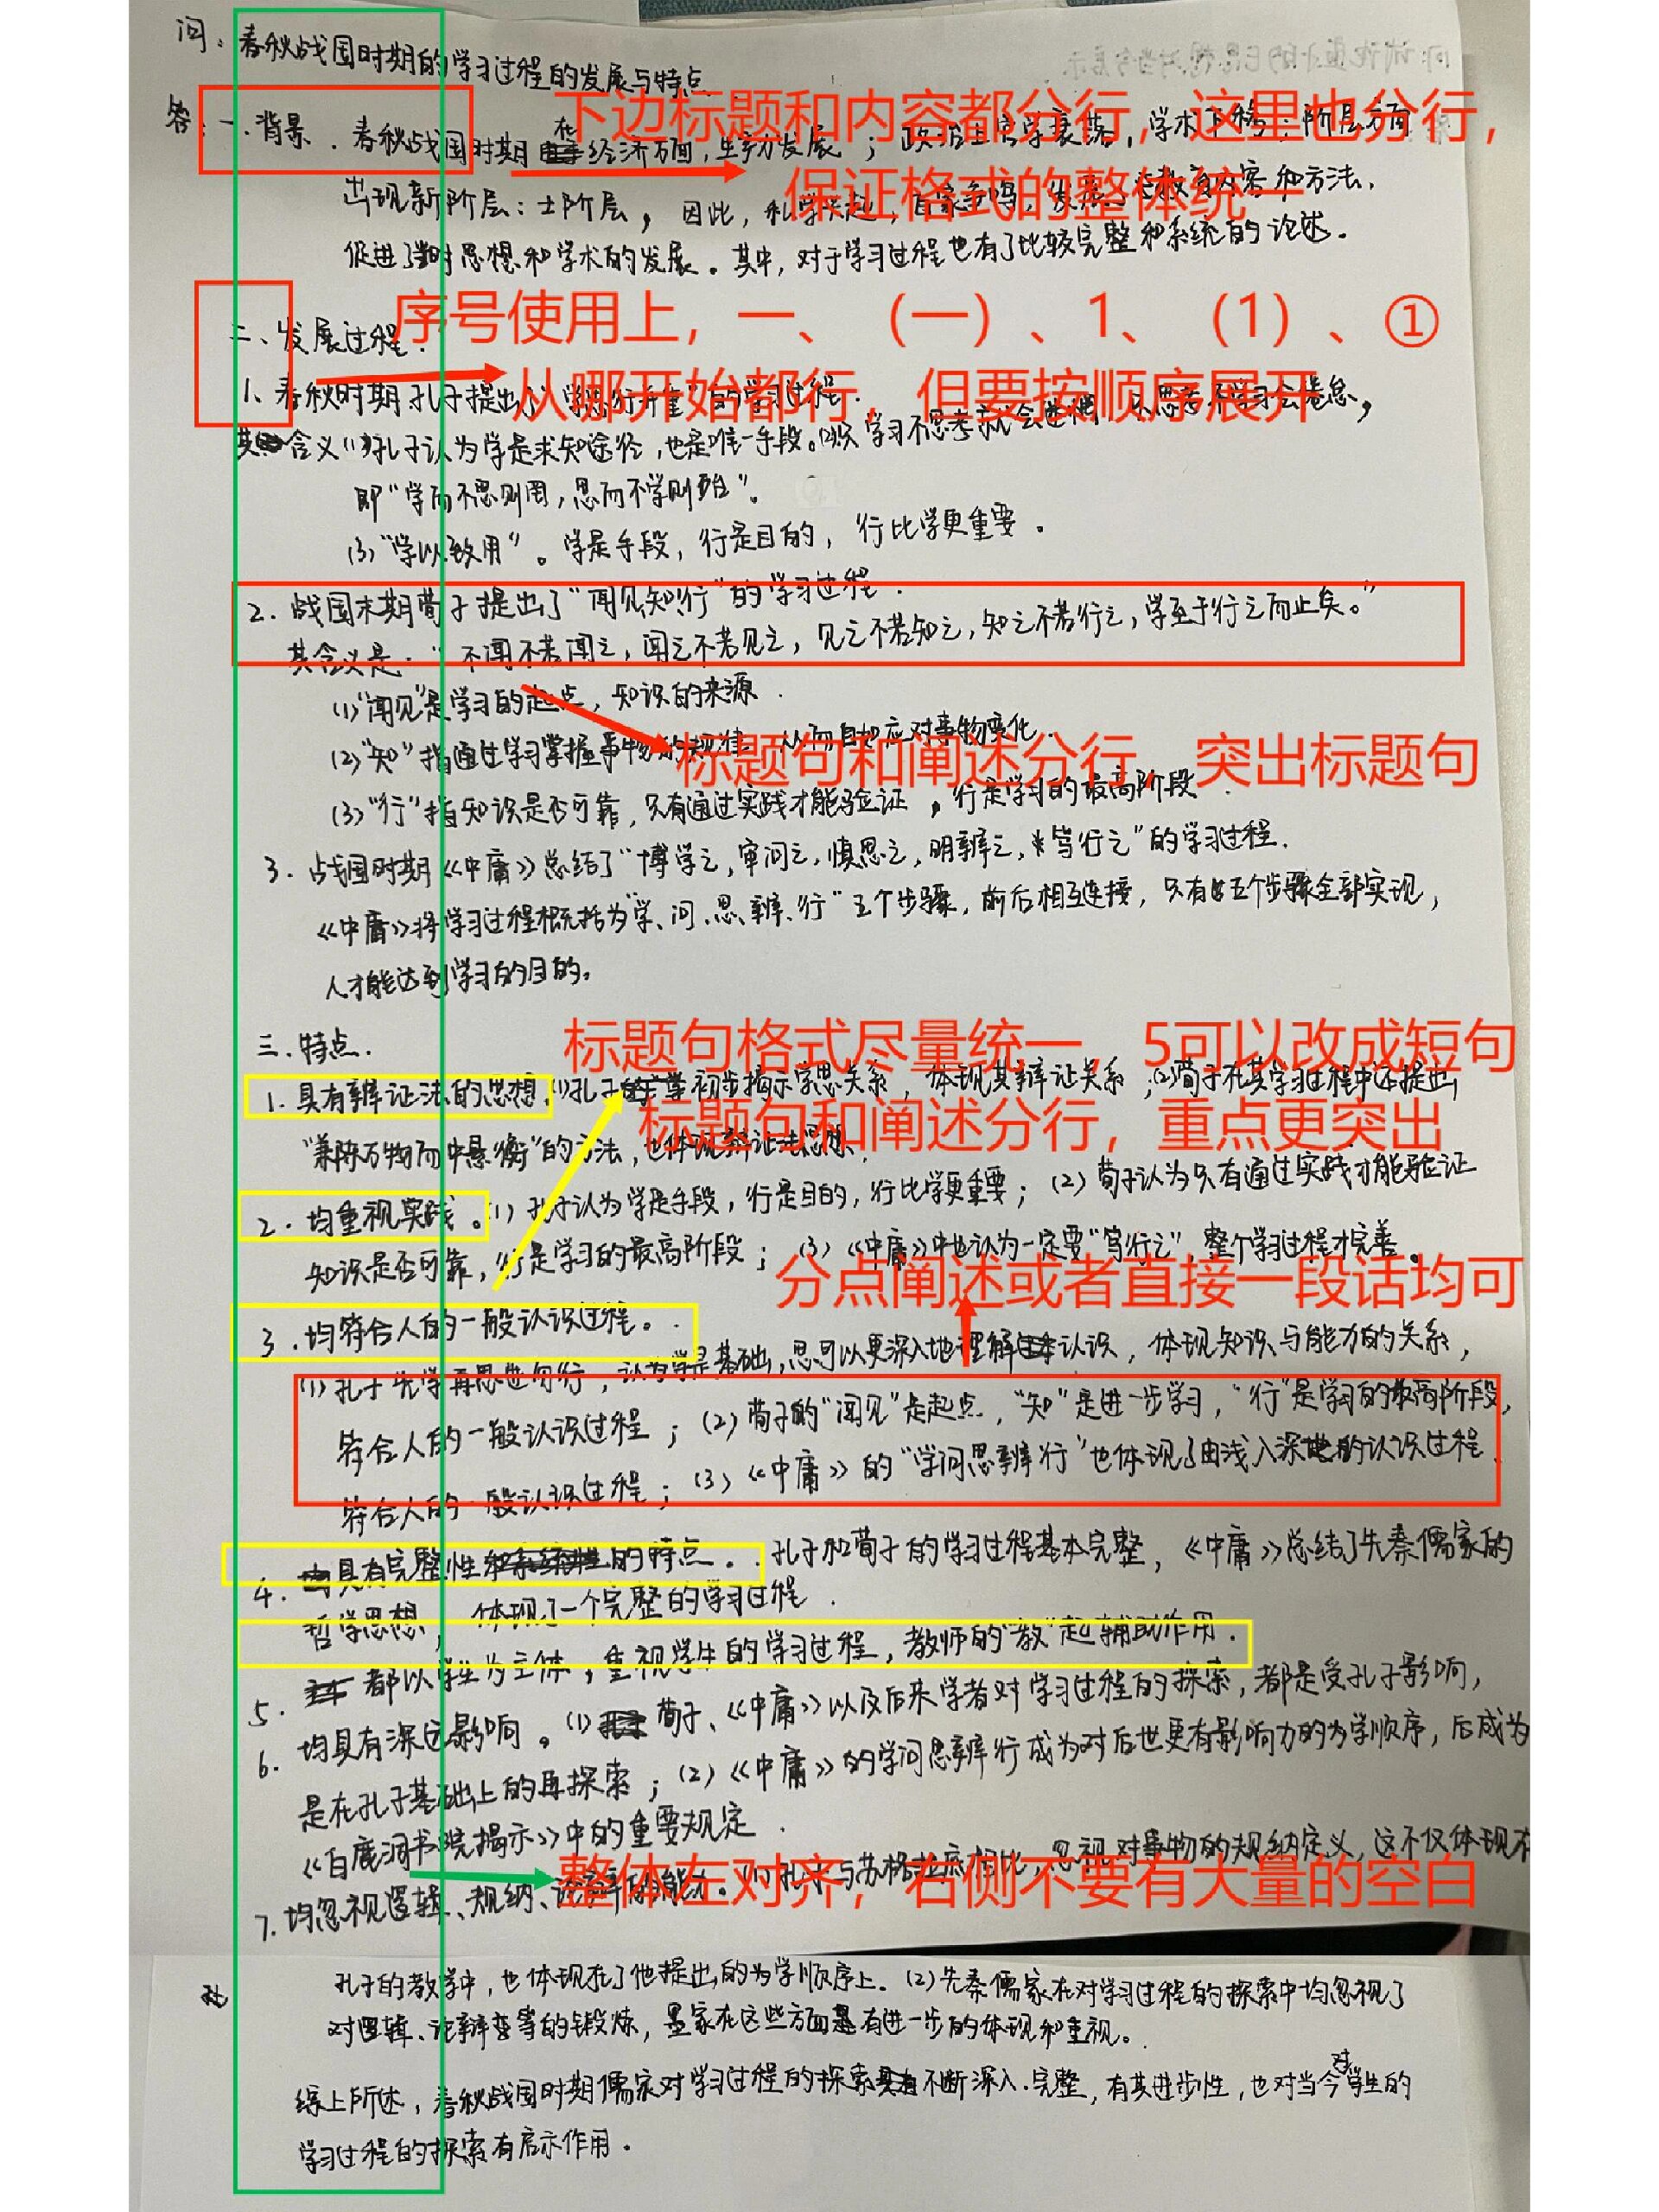 问：春秋战国时期的学习过程的发展与特点
答：一.背景. 春秋战国时期在经济方面，生产力发展；政治上官学衰落，学术下移；阶层方面
下边标题和内容都分行，这里也分行，
保证格式的整体统一
出现新阶层：士阶层，因此，私学兴起，百家争鸣，发展了教育内容和方法，
促进了当时思想和学术的发展。其中，对于学习过程也有了比较完整和系统的论述。
序号使用上，一、（一）、1、（1）、①
从哪开始都行，但要按顺序展开
二、发展过程.
1、春秋时期孔子提出了"学思行并重"的学习过程.
其含义(1)孔子认为学是求知途径，也是唯一手段。(2)学习不思考就会迷惘，不思考不学习会倦怠，
即"学而不思则罔，思而不学则殆"。
(3)"学以致用"。学是手段，行是目的，行比学更重要。
2. 战国末期荀子提出了"闻见知行"的学习过程.
其含义是："不闻不若闻之，闻之不若见之，见之不若知之，知之不若行之，学至于行之而止矣。"
(1)"闻见"是学习的起点，知识的来源.
(2)"知"指通过学习掌握事物的规律，从而自如应对事物变化.
标题句和阐述分行，突出标题句
(3)"行"指知识是否可靠，只有通过实践才能验证，行是学习的最高阶段.
3. 战国时期《中庸》总结了"博学之，审问之，慎思之，明辨之，笃行之"的学习过程.
《中庸》将学习过程概括为"学、问、思、辨、行"五个步骤，前后相互连接，只有五个步骤全部实现，
人才能达到学习的目的。
三.特点.
标题句格式尽量统一，5可以改成短句
标题句和阐述分行，重点更突出
1. 具有辩证法的思想.(1)孔子初步揭示学思关系，体现其辩证关系；(2)荀子在其学习过程中还提出
"兼陈万物而中悬衡"的方法，也体现辩证法思想.
2. 均重视实践。(1) 孔子认为学是手段，行是目的，行比学更重要；(2) 荀子认为只有通过实践才能验证
知识是否可靠，行是学习的最高阶段；(3)《中庸》中也认为一定要"笃行之"，整个学习过程才完善。
分点阐述或者直接一段话均可
3. 均符合人的一般认识过程。
(1) 孔子先学再思进而行，认为学是基础，思可以更深入地理解认识，体现知识与能力的关系，
符合人的一般认识过程；(2) 荀子的"闻见"是起点，"知"是进一步学习，"行"是学习的最高阶段，
符合人的一般认识过程；(3)《中庸》的"学问思辨行"也体现了由浅入深的认识过程.
4. 具有完整性的特点。孔子和荀子的学习过程基本完整，《中庸》总结了先秦儒家的
哲学思想，体现了一个完整的学习过程.
5. 都以学生为主体，重视学生的学习过程，教师的"教"起辅助作用.
6. 均具有深远影响。(1) 荀子、《中庸》以及后来学者对学习过程的探索，都是受孔子影响，
是在孔子基础上的再探索；(2)《中庸》的学问思辨行成为对后世更有影响力的为学顺序，后成为
《白鹿洞书院揭示》中的重要规定.
7. 均忽视逻辑、规纳、论辩等的能力。(1) 孔子与苏格拉底相比，忽视对事物的规纳定义，这不仅体现在
整体左对齐，右侧不要有大量的空白
孔子的教学中，也体现在了他提出的为学顺序上。(2)先秦儒家在对学习过程的探索中均忽视了
对逻辑、论辩等的锻炼，墨家在这些方面是有进一步的体现和重视。
综上所述，春秋战国时期儒家对学习过程的探索不断深入.完整，有其进步性，也对当今对学生的
学习过程的探索有启示作用。